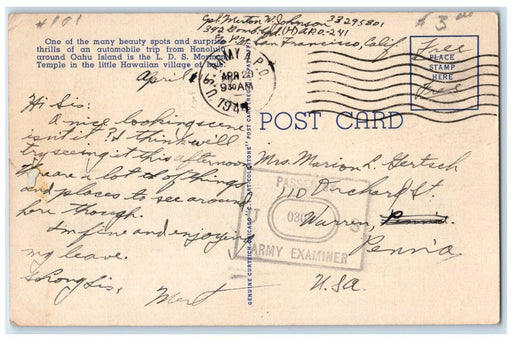 #101
$3.00
Cpl. Merton W. Johnson 33295801
392 Bomb. Sqd. (H) A.P.O.-241
c/o P.M. San Francisco, Calif.
One of the many beauty spots and surprise
thrills of an automobile trip from Honolulu
around Oahu Island is the L. D. S. Mormon
Temple in the little Hawaiian village of Laie.
U.S. ARMY A.P.O.
APR 2
930AM
1944
Free
PLACE
STAMP
HERE
April
Hi Sis:
A nice looking scene
isn't it? I think I will
try seeing it this afternoon.
There are a lot of things
and places to see around
here though.
I'm fine and enjoying
my leave.
So long Sis,
Mert
POST CARD
GENUINE CURTEICH-CHICAGO "C.T. ART-COLORTONE" POST CARD
Mrs. Marion L. Gertsch
110 Orchard St.
Warren,
Penn'a
U.S.A.
PASSED BY
U S
ARMY EXAMINER